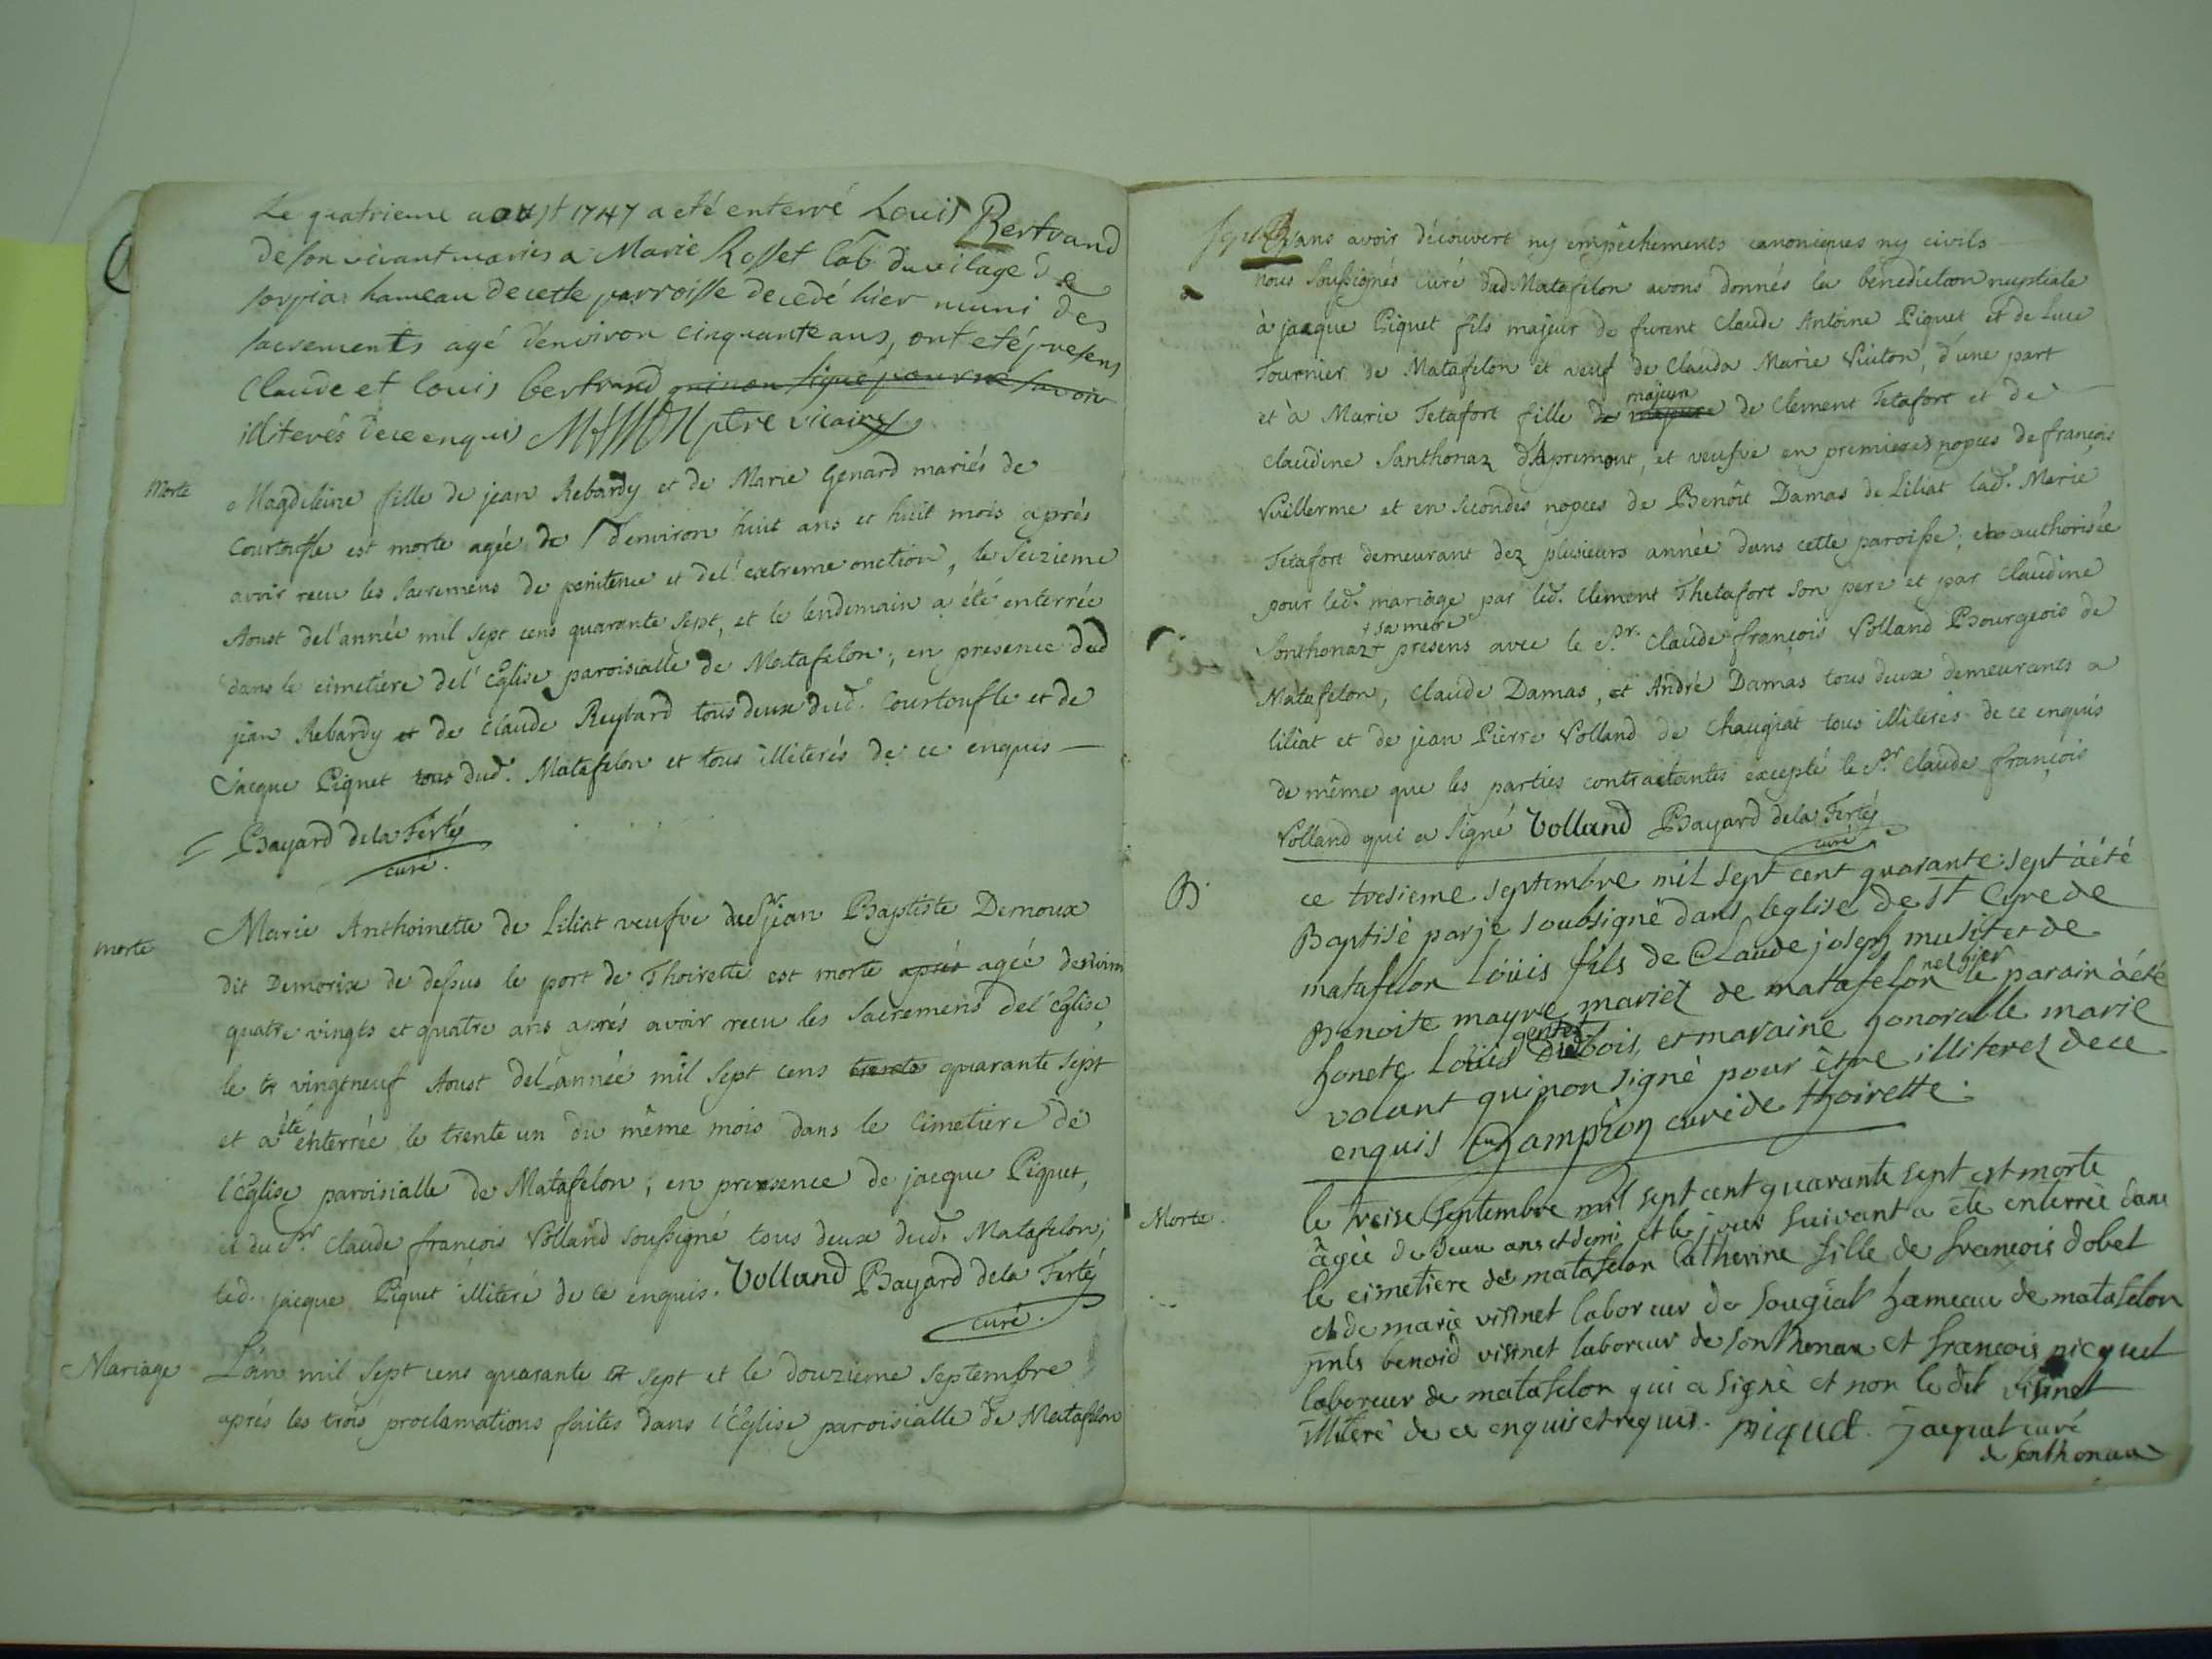 Le quatrieme aoust 1747 a eté enterré Louis Bertrand
de son vivant maries a Marie Rosset lab. du vilage de
sorpia hameau de cette parroisse decedé hier muni des
sacrements agé d'environ cinquante ans, ont eté presens
Claude et louis bertrand qui non signé pour ne savoir
illiterés de ce enquis ptre vicaire
Morte
Magdeleine fille de jean Rebardy et de Marie Genard mariés de
Courtoufle est morte agée de d'environ huit ans et huit mois après
avoir recu les Sacremens de penitence et del'extreme onction, le Seizieme
Aoust del'année mil sept cens quarante sept, et le lendemain a été enterrée
dans le cimetiere del'Eglise paroisialle de Matafelon; en presence dud
jean Rebardy et de claude Reybard tous deux dud. Courtoufle et de
jacque Piquet tous dud. Matafelon et tous illiterés de ce enquis —
Bayard dela Ferté
curé.
morte
Marie Anthoinette de Liliat veufve du Sr jean Baptiste Demoux
dit Demorix de dessus le port de Thoirette est morte après agée denviron
quatre vingts et quatre ans après avoir recu les Sacremens del'Eglise,
le vingtneuf Aoust del'année mil sept cens trente quarante sept
et a été enterrée le trente un du même mois dans le Cimetiere de
l'Eglise paroisialle de Matafelon; en presence de jacque Piquet,
et du Sr. Claude françois Volland soussigné tous deux dud. Matafelon;
led. jacque Piquet illiteré de ce enquis. Volland Bayard dela Ferté
curé.
Mariage
L'an mil sept cens quarante et sept et le douzieme septembre
après les trois proclamations faites dans l'Eglise paroisialle de Matafelon
sans avoir découvert ny empêchements canoniques ny civils
nous soussignés curé dud Matafelon avons donnés la benediction nuptiale
à jacque Piquet fils majeur de furent Claude Antoine Piquet et de Luce
Tournier de Matafelon et veuf de Clauda Marie Vuiton, d'une part
majeure
et à Marie Tetafort fille de majeure de Clement Tetafort et de
Claudine Santhonaz d'Apremont, et veufve en premieres nopces de françois
Vuillerme et en secondes nopces de Benoît Damas de Liliat lad. Marie
Tetafort demeurant dez plusieurs année dans cette paroisse; authorisée
pour led. mariage par led. Clement Thetafort son pere et par Claudine
+ sa mere
Sonthonaz+ presens avec le Sr. Claude françois Volland Bourgeois de
Matafelon, Claude Damas, et André Damas tous deux demeurants a
liliat et de jean Pierre Volland de Chaugiat tous illiterés de ce enquis
de même que les parties contractantes excepté le Sr Claude françois
Volland qui a Signé Volland Bayard dela Ferté
curé
B
ce tresieme septembre mil sept cent quarante sept à été
Baptisé par je soubsigné dans leglise de St Cyre de
matafelon Loüis fils de Claude joseph musit et de
ne hier
Benoite mayre mariez de matafelon le parain à été
honete Loüis Dubois, et maraine honorable marie
volant qui non signé pour être illiterez de ce
enquis Champion curé de thoirette.
Morte.
le treise septembre mil sept cent quarante sept est morte
âgée de deux ans et demi et le jour suivant a ete enterrée dans
le cimetiere de matafelon Catherine fille de francois dobet
et de marie visinet laboreur de Sougiat hameau de matafelon
pnts benoid visinet laboreur de sonthonax et francois picquet
laboreur de matafelon qui a signé et non le dit visinet
illiteré de ce enquis et requis. piquet. Jacquet curé
de sonthonax